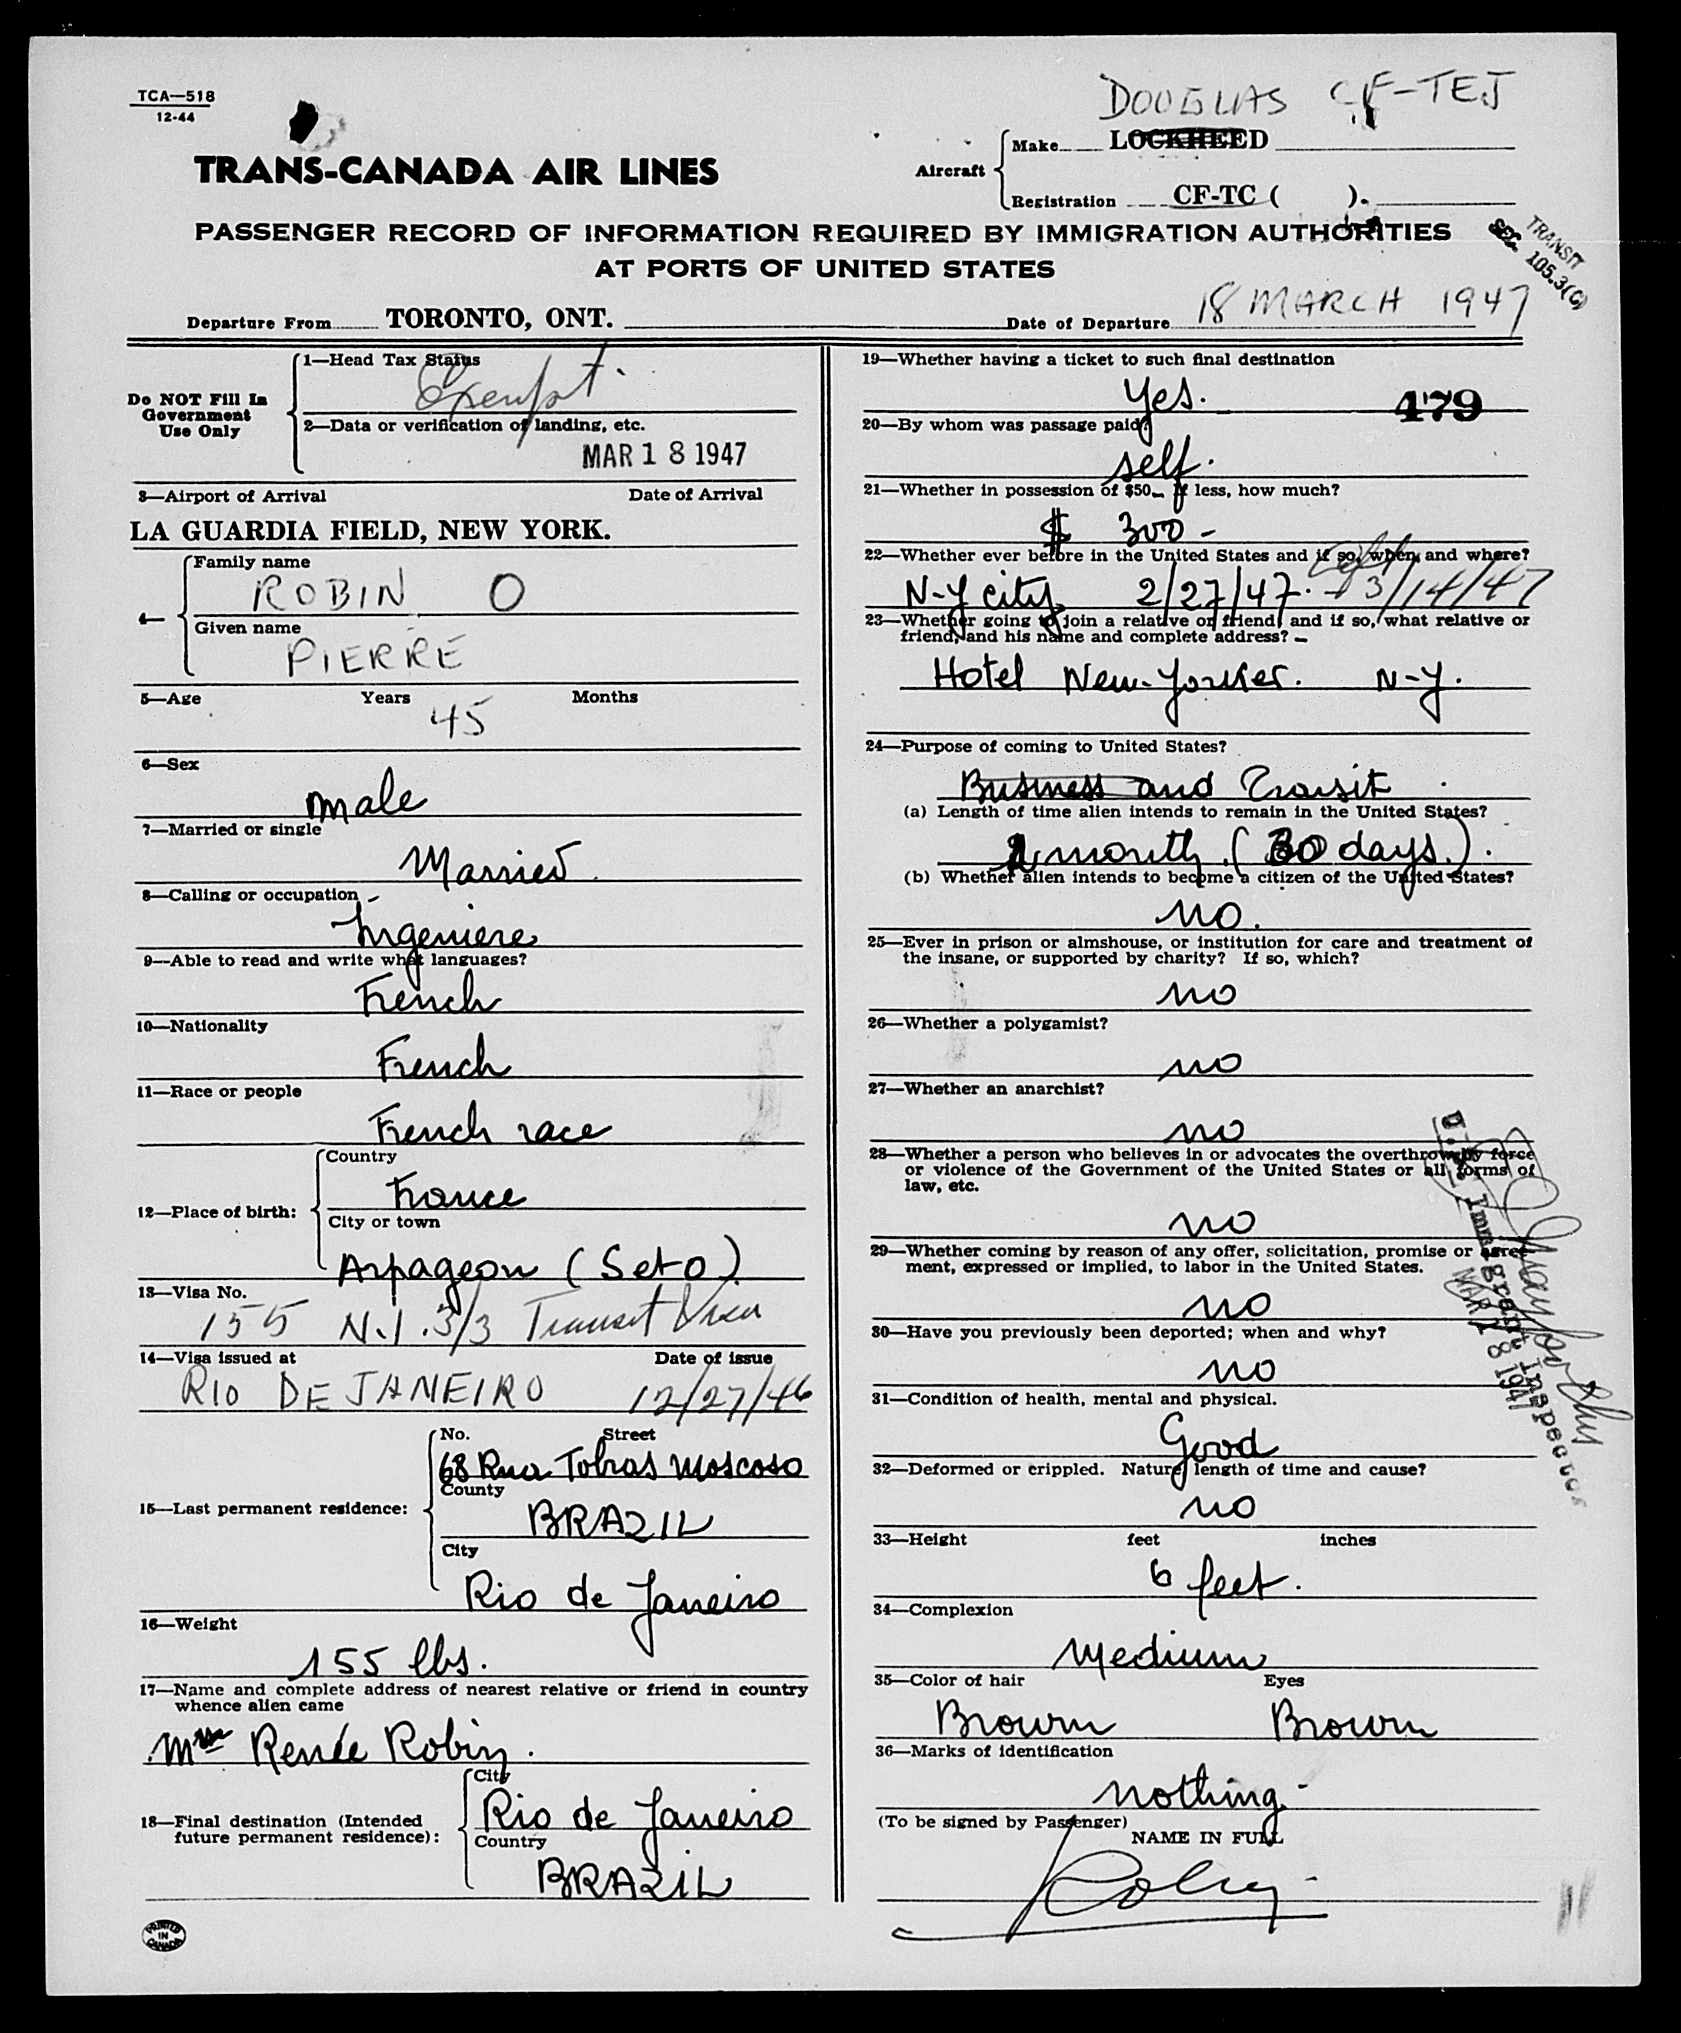 TCA—518
12-44
DOUGLAS CF-TEJ
TRANS-CANADA AIR LINES
Aircraft
Make LOCKHEED
Registration CF-TC ( ).
PASSENGER RECORD OF INFORMATION REQUIRED BY IMMIGRATION AUTHORITIES
AT PORTS OF UNITED STATES
TRANSIT
SEC. 105.3(C)
Departure From TORONTO, ONT.
Date of Departure 18 MARCH 1947
Do NOT Fill In
Government
Use Only
1—Head Tax Status
Exempt.
2—Data or verification of landing, etc.
MAR 18 1947
3—Airport of Arrival Date of Arrival
LA GUARDIA FIELD, NEW YORK.
4—
Family name
ROBIN O
Given name
PIERRE
5—Age Years Months
45
6—Sex
male
7—Married or single
Married
8—Calling or occupation
Ingeniere
9—Able to read and write what languages?
French
10—Nationality
French
11—Race or people
French race
12—Place of birth:
Country
France
City or town
Arpageon (Set O)
13—Visa No.
155 N.I. 3/3 Transit Visa
14—Visa issued at Date of issue
RIO DE JANEIRO 12/27/46
15—Last permanent residence:
No. Street
68 Rua Tobias Moscoso
County
BRAZIL
City
Rio de Janeiro
16—Weight
155 lbs.
17—Name and complete address of nearest relative or friend in country
whence alien came
Mme Renée Robin.
18—Final destination (Intended
future permanent residence):
City
Rio de Janeiro
Country
BRAZIL
PRINTED
IN
CANADA
19—Whether having a ticket to such final destination
yes.
479
20—By whom was passage paid?
self.
21—Whether in possession of $50. If less, how much?
$ 300 -
22—Whether ever before in the United States and if so, when, and where?
N-Y city, 2/27/47. Left 3/14/47
23—Whether going to join a relative or friend, and if so, what relative or
friend, and his name and complete address?
Hotel New-Yorker. N-Y.
24—Purpose of coming to United States?
Business and Transit
(a) Length of time alien intends to remain in the United States?
1 month. (30 days.).
(b) Whether alien intends to become a citizen of the United States?
no.
25—Ever in prison or almshouse, or institution for care and treatment of
the insane, or supported by charity? If so, which?
no
26—Whether a polygamist?
no
27—Whether an anarchist?
no
28—Whether a person who believes in or advocates the overthrow by force
or violence of the Government of the United States or all forms of
law, etc.
no
29—Whether coming by reason of any offer, solicitation, promise or agree-
ment, expressed or implied, to labor in the United States.
no
30—Have you previously been deported; when and why?
no
U.S. Immigrant Inspector
MAR 18 1947
31—Condition of health, mental and physical.
Good
32—Deformed or crippled. Nature, length of time and cause?
no
33—Height feet inches
6 feet.
34—Complexion
Medium
35—Color of hair Eyes
Brown Brown
36—Marks of identification
nothing -
(To be signed by Passenger)
NAME IN FULL
Robin
11